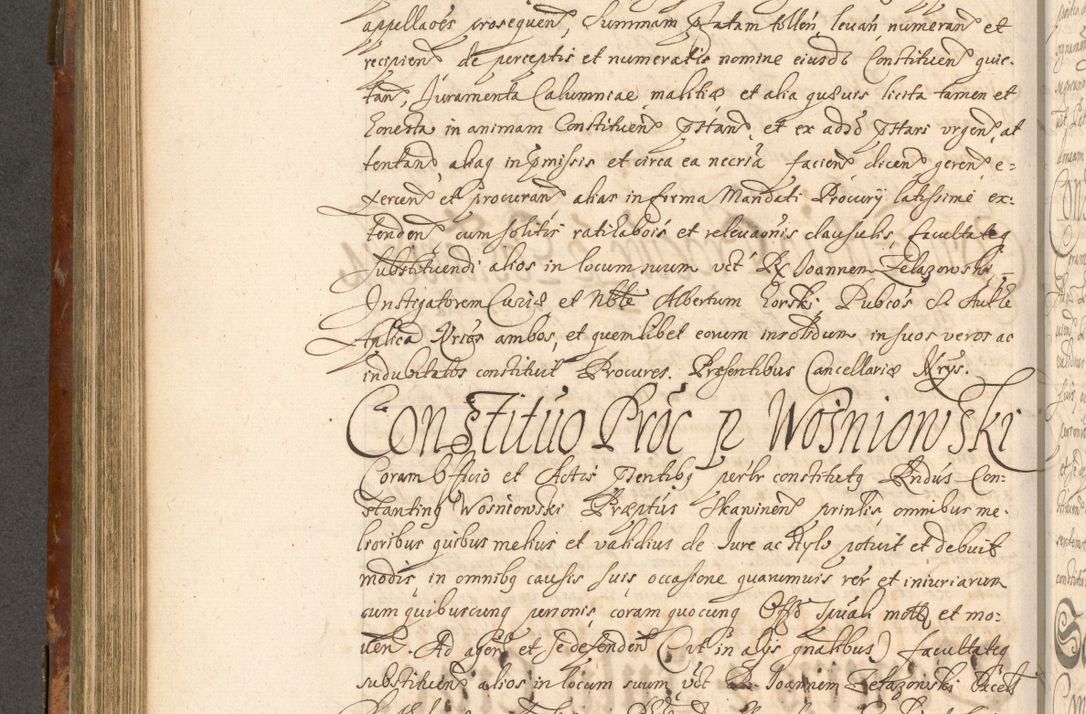 appellaões prosequeñ, Summam pstatam tollen, leuan, numeran et
recipien de perceptis et numeratis nomine eiusd Constituen quie-
tan, Juramenta Calumniae malitiæ et alia quæuis licita tamen et
honesta in animam Constituen pstan, et ex adõ pstari urgen, at
tentan aliaq in pmissis et circa ea necria facien dicen geren e-
xercen et procuran alias in forma Mandati Procurij latissime ex-
tenden cum solitis ratihabois et releuaonis clausulis, facultateq
substituendi alios in locum suum vct Rx Joannem Zelazowski
Instigatorem Curiæ et Nble Albertum Gorski Publcõs S. Authe
Aplica Nrios ambos, et quemlibet eorum insolidum in suos veros ac
indubitatos constituit Procures. Præsentibus Cancellariæ Nrijs.
Constituo Proc p Wośniowski
Coram Officio et Actis psentibq persr constitutq Rndus Con-
stantinq Wosniowski Præptus Skawinen prinlis omnibus me-
lioribus quibus melius et validius de Jure ac stylo potuit et debuit
modis, in omnibq causis suis, occasione quarumuis rer et iniuriarum
cum quibuscunq personis, coram quocunq Offo Spuali motis et mo-
uen. Ad agen et se defenden (ut in alys gnalibus) facultateq
substituen alios in locum suum vct R. Joannem Zelazowski